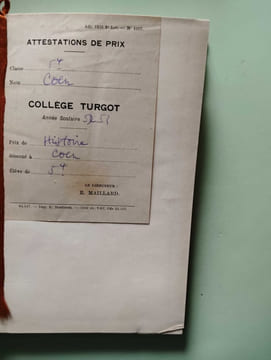 ATTESTATIONS DE PRIX
Classe 5
Nom Coen
COLLÈGE TURGOT
Année Scolaire 52 53
Prix de Histoire
Décerné à Coen
Élève de 5
LE DIRECTEUR :
R. MAILLARD.